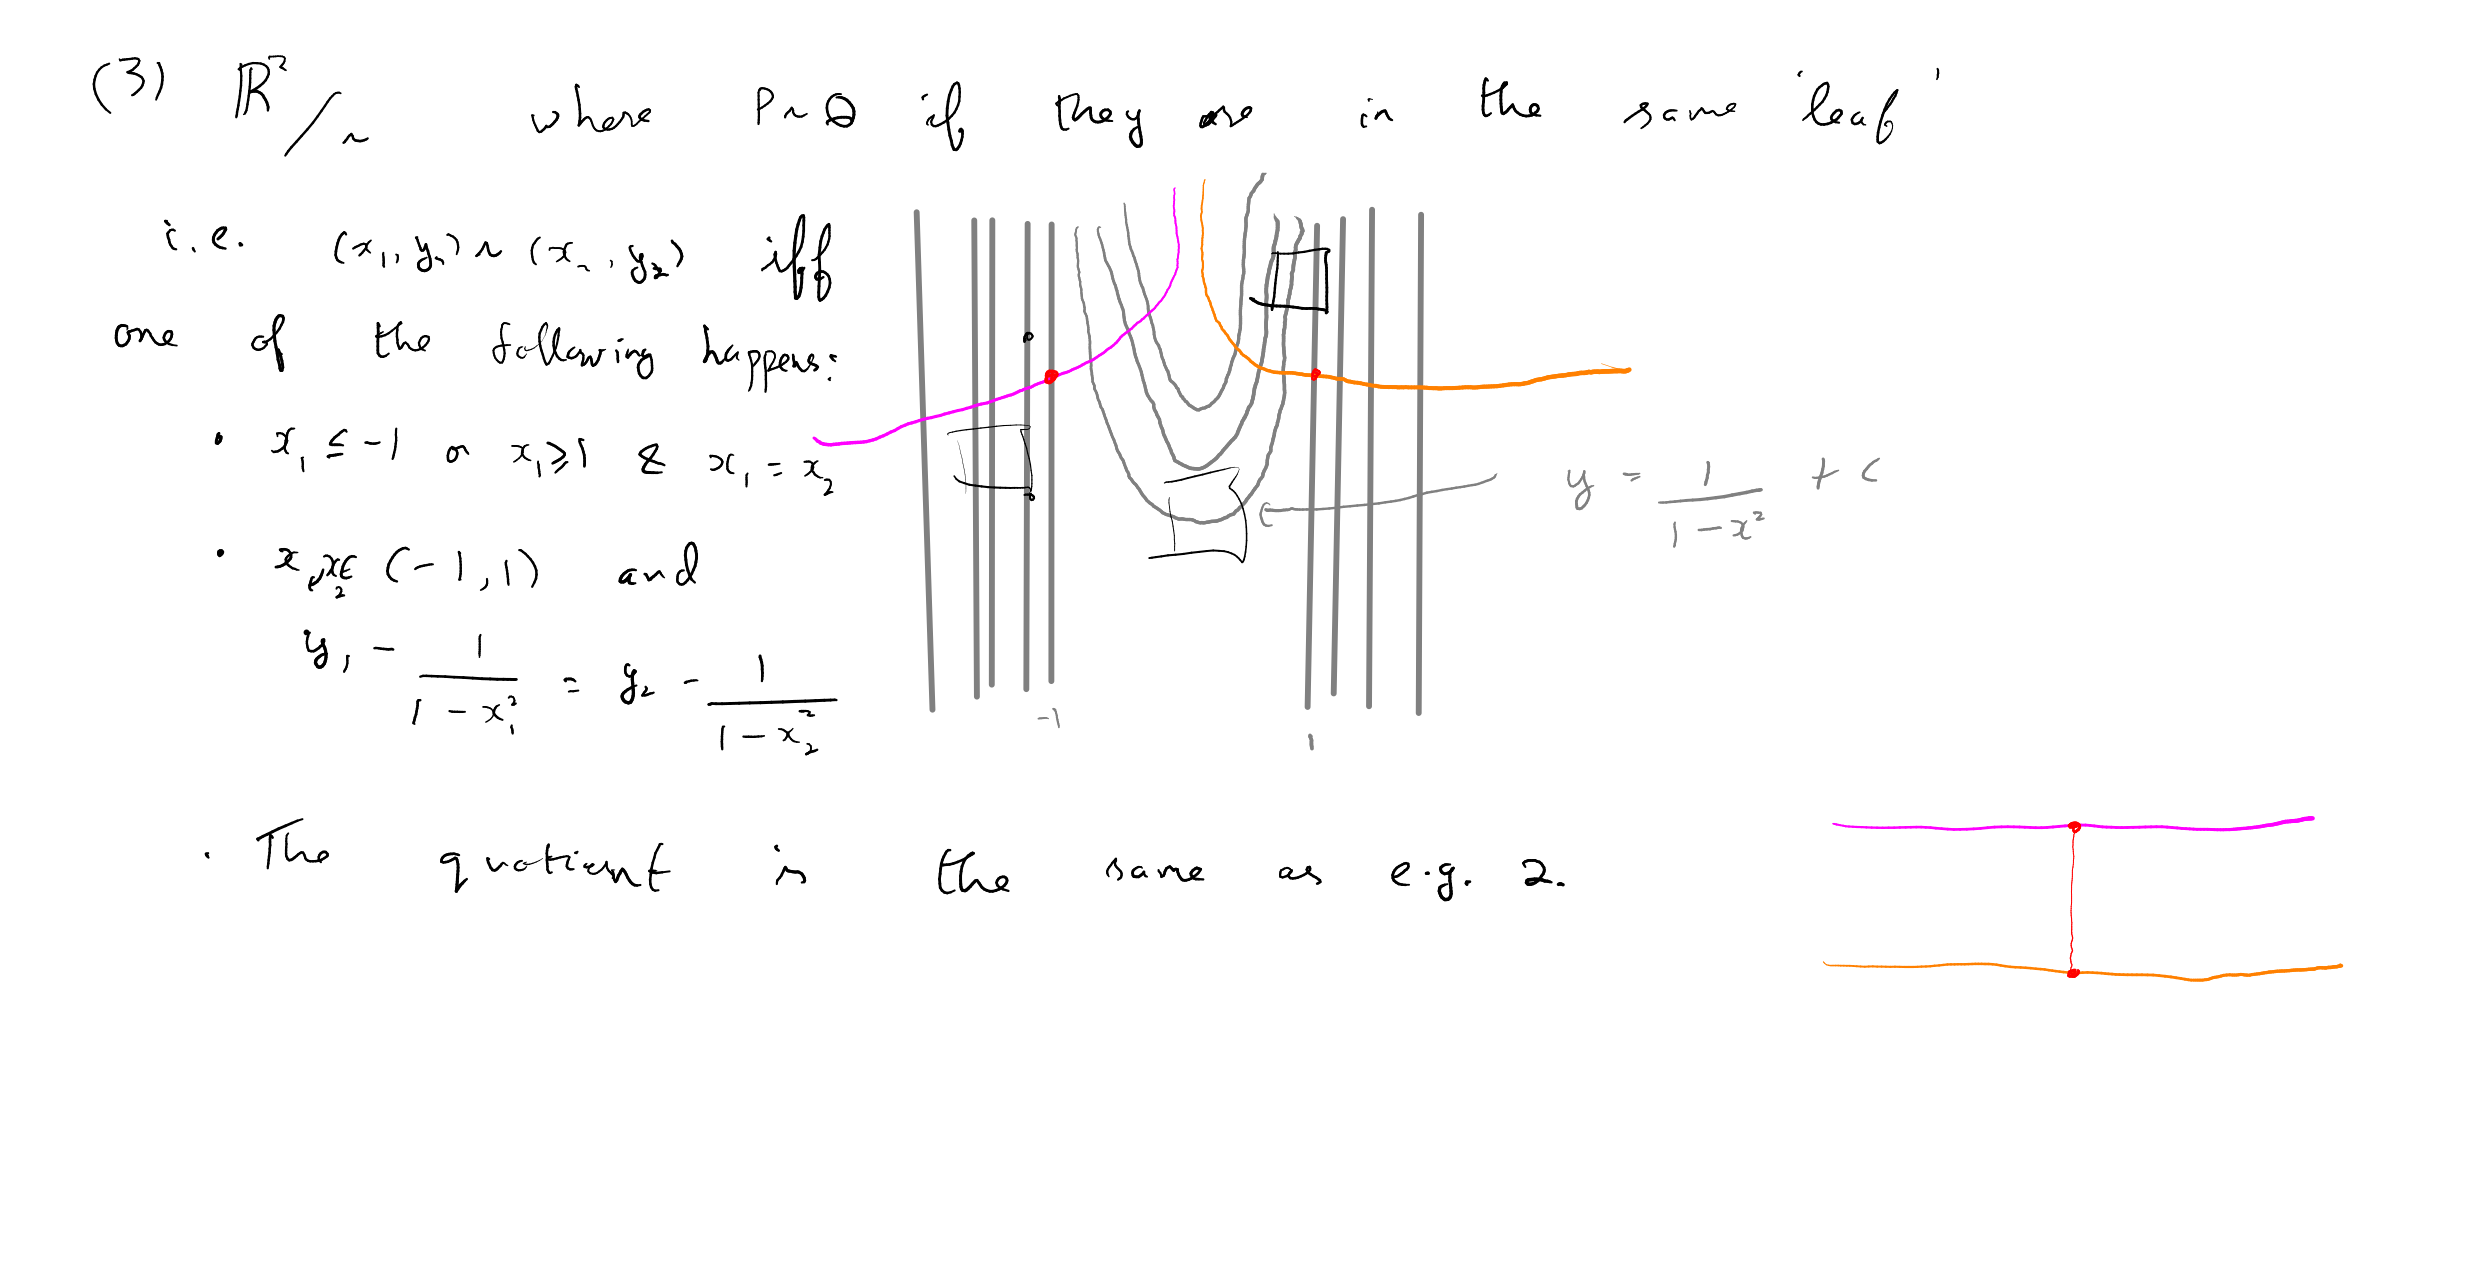 (3) ℝ²/~ where P~Q if they are in the same 'leaf'
i.e. (x₁, y₁) ~ (x₂, y₂) iff
one of the following happens:
• x₁ ≤ -1 or x₁ ≥ 1 & x₁ = x₂
• x₁, x₂ ∈ (-1, 1) and
y₁ - 1/(1 - x₁²) = y₂ - 1/(1 - x₂²)
y = 1/(1 - x²) + c
-1
1
• The quotient is the same as e.g. 2.